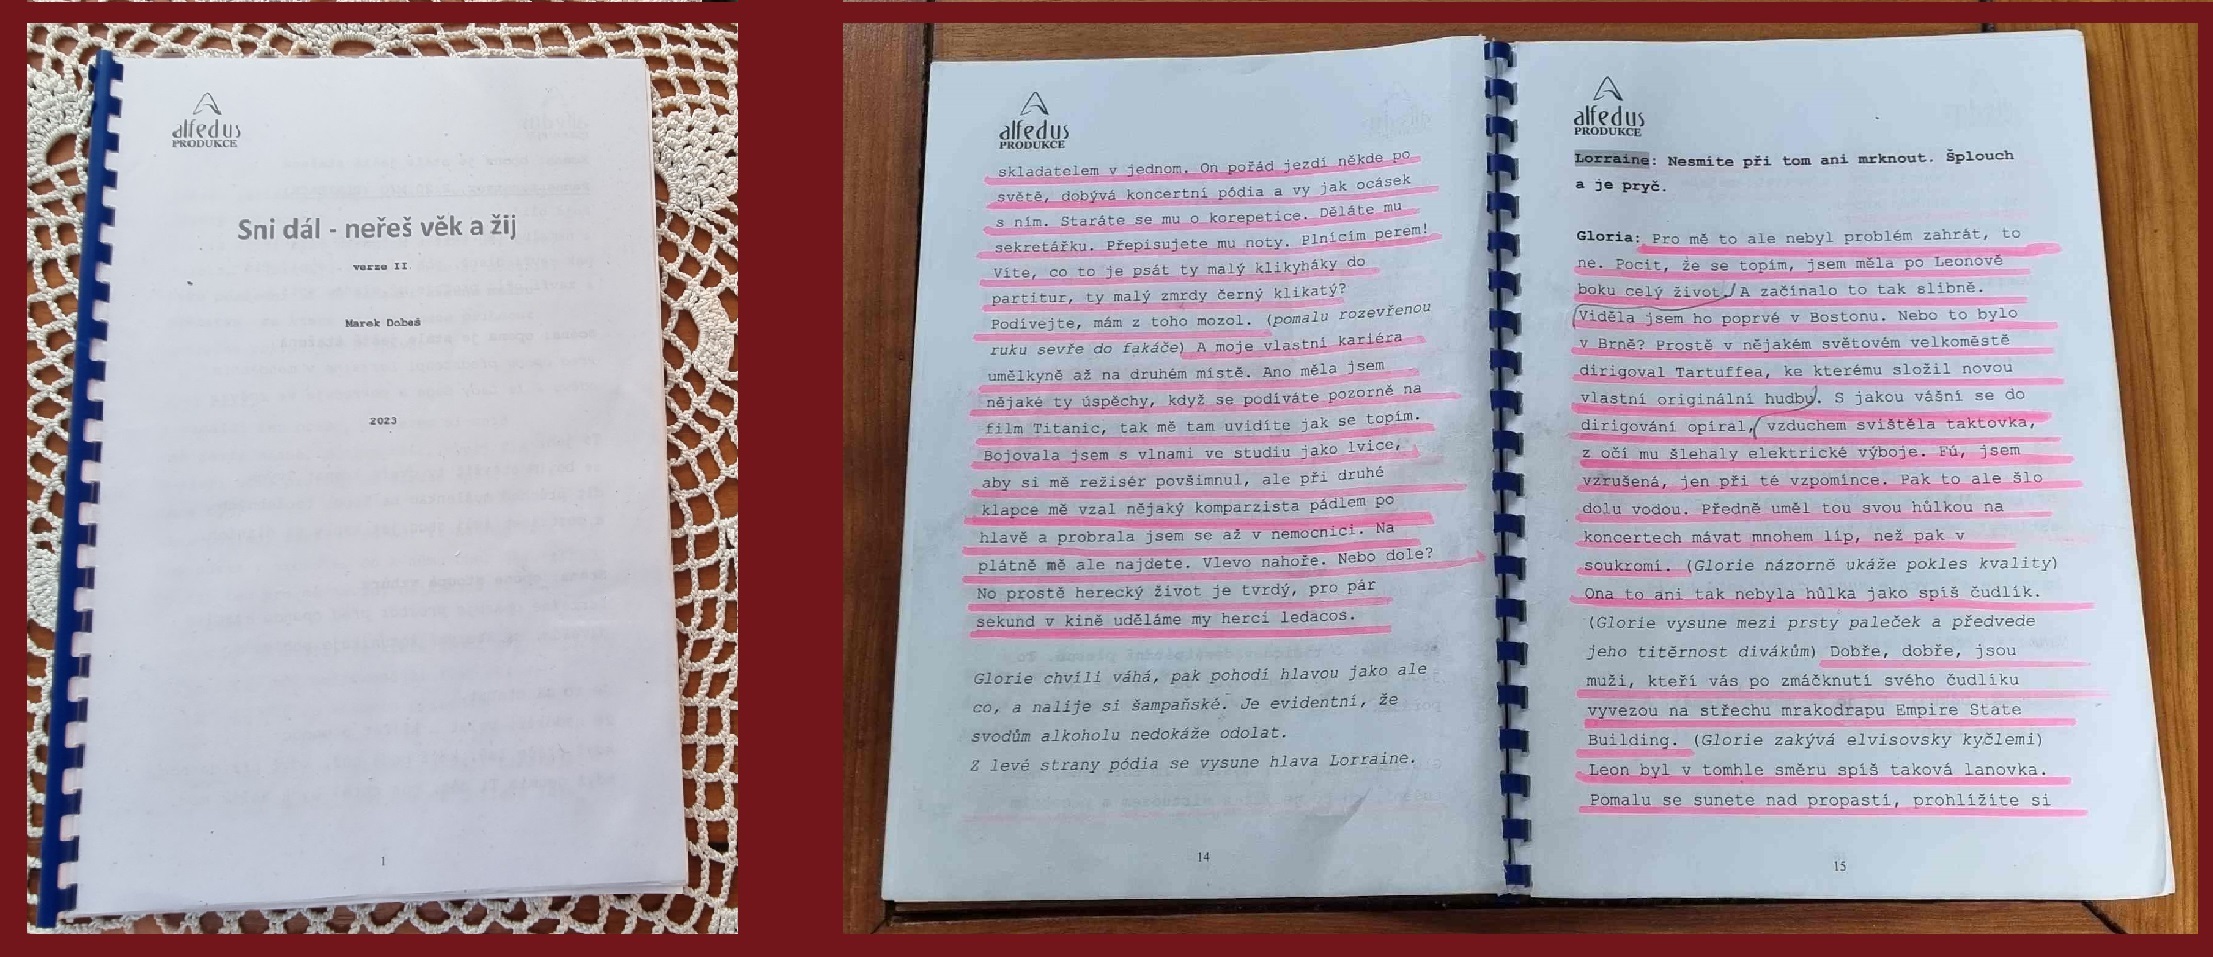 alfedus
PRODUKCE
Sni dál - neřeš věk a žij
verze II
Marek Dobeš
2023
1
alfedus
PRODUKCE
skladatelem v jednom. On pořád jezdí někde po
světě, dobývá koncertní pódia a vy jak ocásek
s ním. Staráte se mu o korepetice. Děláte mu
sekretářku. Přepisujete mu noty. Plnícím perem!
Víte, co to je psát ty malý klikyháky do
partitur, ty malý zmrdy černý klikatý?
Podívejte, mám z toho mozol. (pomalu rozevřenou
ruku sevře do fakáče) A moje vlastní kariéra
umělkyně až na druhém místě. Ano měla jsem
nějaké ty úspěchy, když se podíváte pozorně na
film Titanic, tak mě tam uvidíte jak se topím.
Bojovala jsem s vlnami ve studiu jako lvice,
aby si mě režisér povšimnul, ale při druhé
klapce mě vzal nějaký komparzista pádlem po
hlavě a probrala jsem se až v nemocnici. Na
plátně mě ale najdete. Vlevo nahoře. Nebo dole?
No prostě herecký život je tvrdý, pro pár
sekund v kině uděláme my herci ledacos.
Glorie chvíli váhá, pak pohodí hlavou jako ale
co, a nalije si šampaňské. Je evidentní, že
svodům alkoholu nedokáže odolat.
Z levé strany pódia se vysune hlava Lorraine.
14
alfedus
PRODUKCE
Lorraine: Nesmíte při tom ani mrknout. Šplouch
a je pryč.
Gloria: Pro mě to ale nebyl problém zahrát, to
ne. Pocit, že se topím, jsem měla po Leonově
boku celý život. A začínalo to tak slibně.
Viděla jsem ho poprvé v Bostonu. Nebo to bylo
v Brně? Prostě v nějakém světovém velkoměstě
dirigoval Tartuffea, ke kterému složil novou
vlastní originální hudbu. S jakou vášní se do
dirigování opíral, vzduchem svištěla taktovka,
z očí mu šlehaly elektrické výboje. Fú, jsem
vzrušená, jen při té vzpomínce. Pak to ale šlo
dolu vodou. Předně uměl tou svou hůlkou na
koncertech mávat mnohem líp, než pak v
soukromí. (Glorie názorně ukáže pokles kvality)
Ona to ani tak nebyla hůlka jako spíš čudlík.
(Glorie vysune mezi prsty paleček a předvede
jeho titěrnost divákům) Dobře, dobře, jsou
muži, kteří vás po zmáčknutí svého čudlíku
vyvezou na střechu mrakodrapu Empire State
Building. (Glorie zakývá elvisovsky kyčlemi)
Leon byl v tomhle směru spíš taková lanovka.
Pomalu se sunete nad propastí, prohlížíte si
15